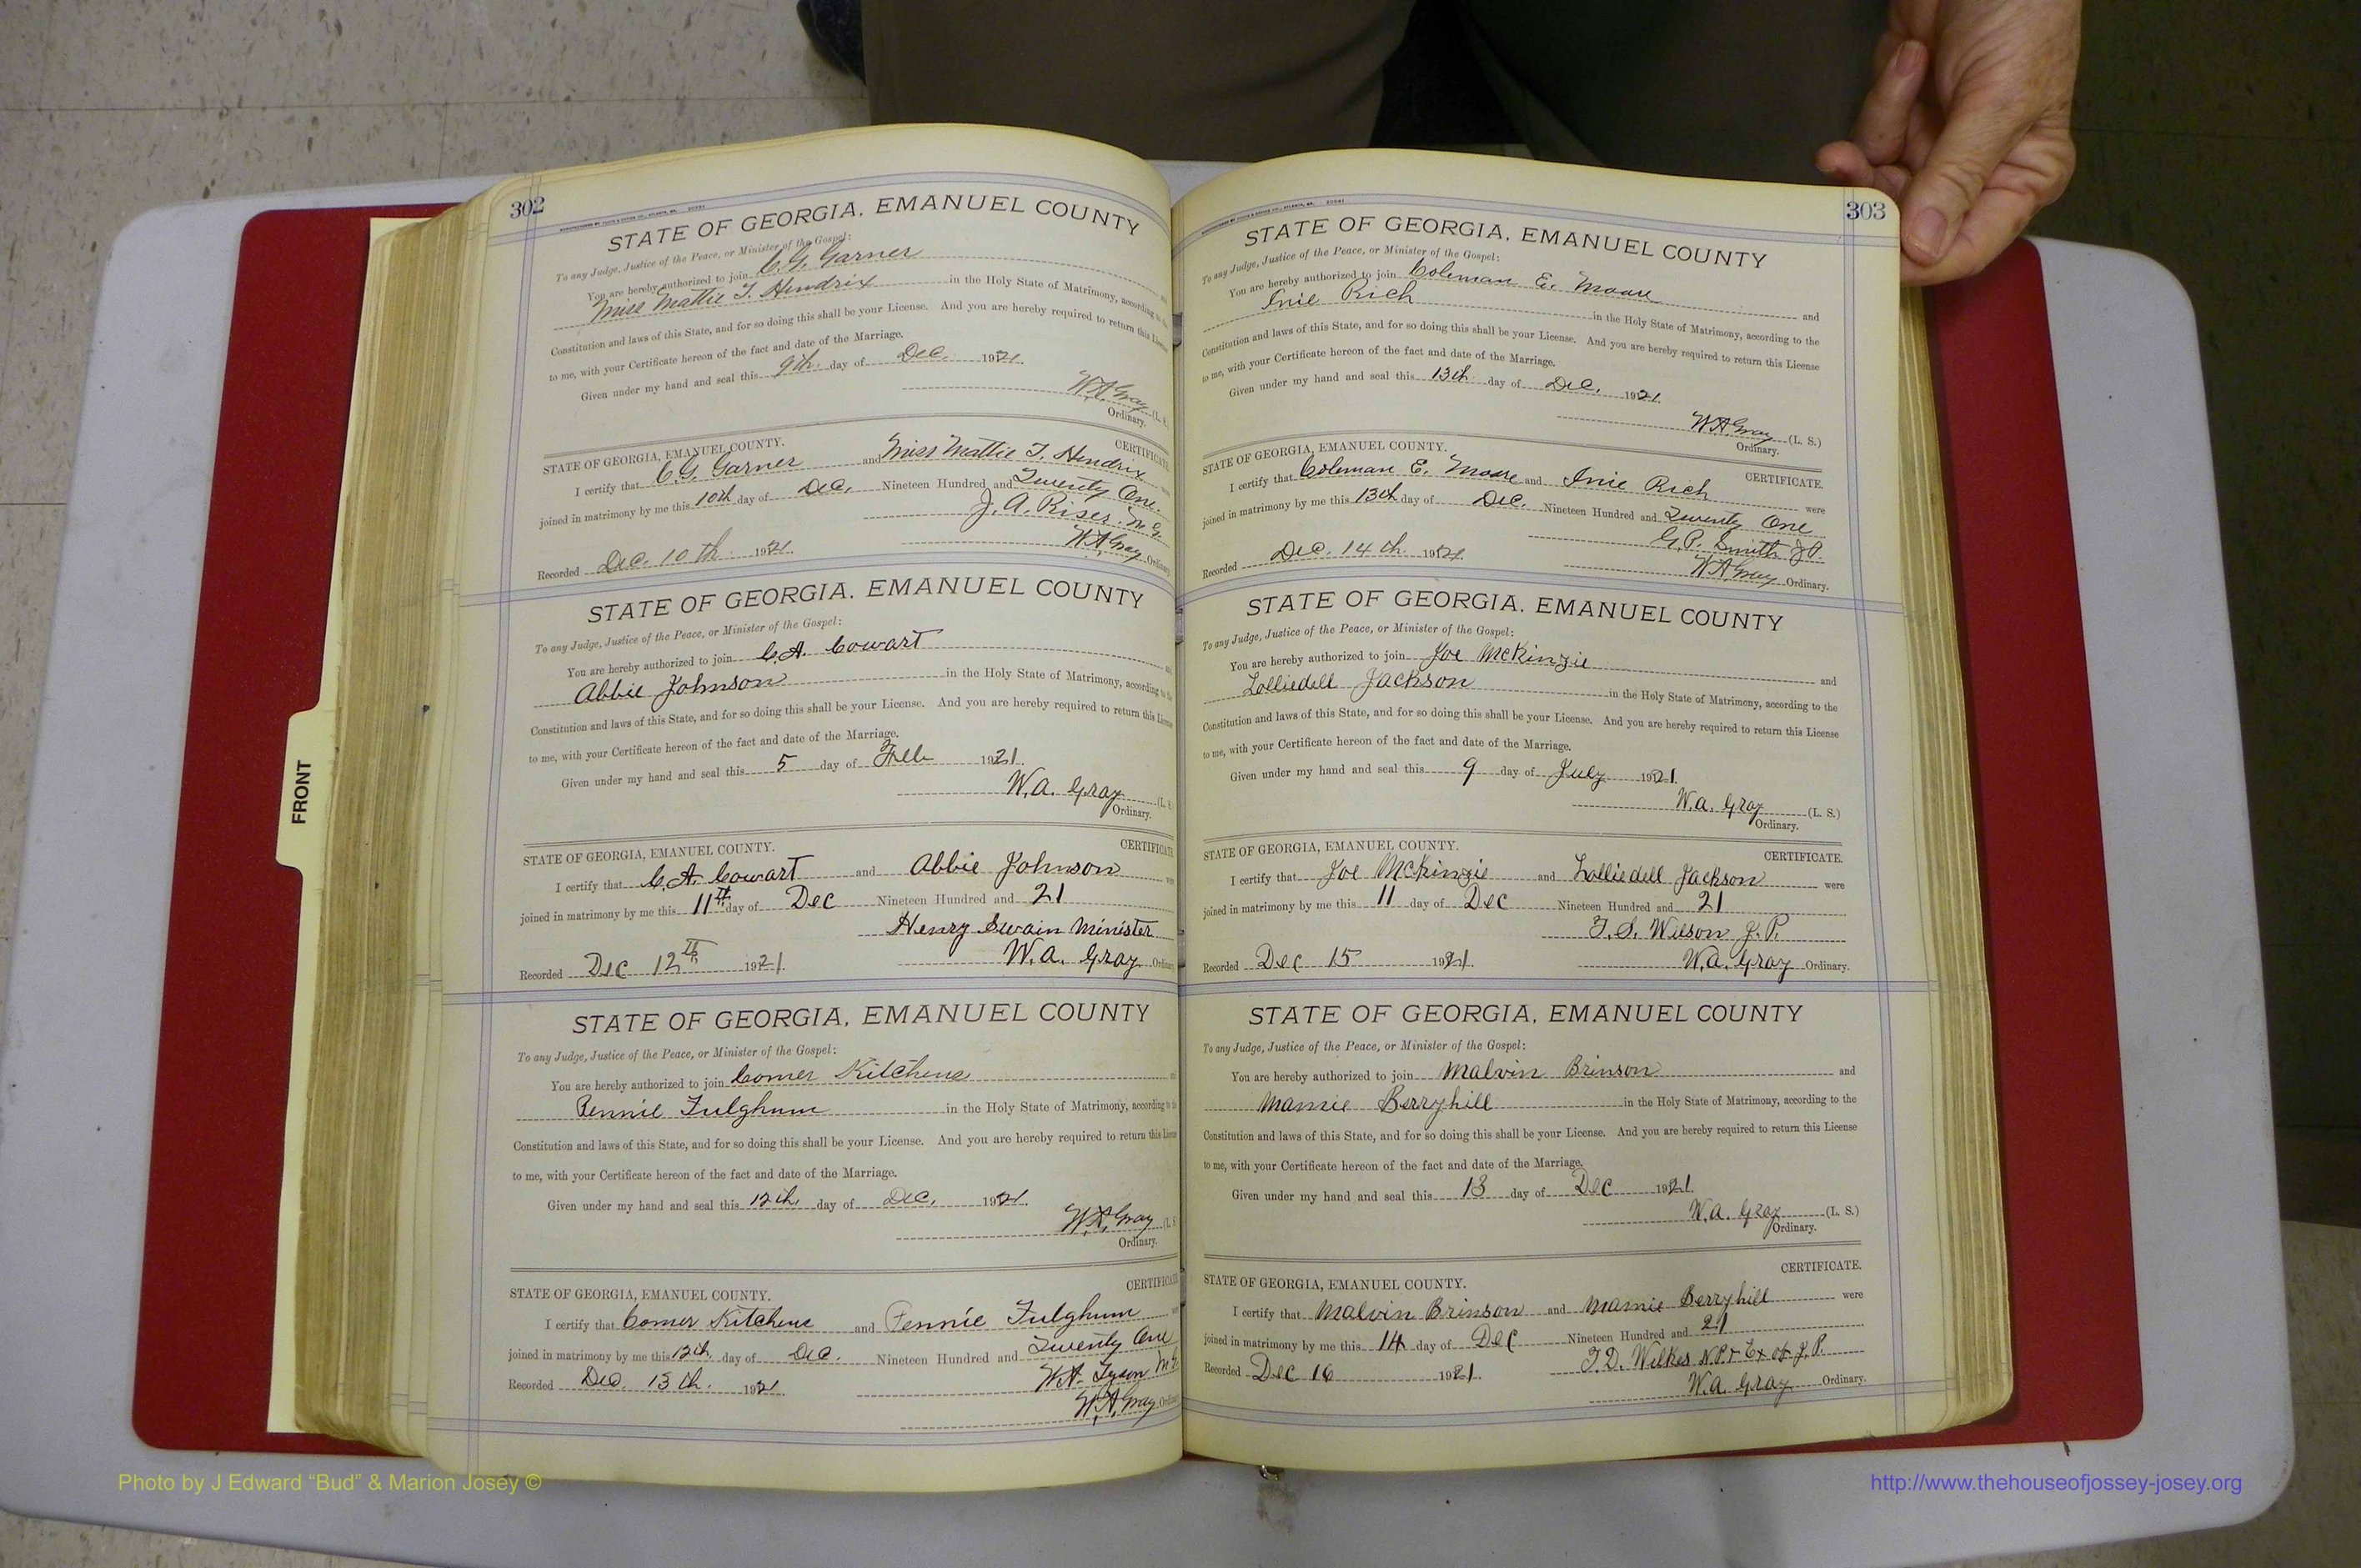 302
STATE OF GEORGIA, EMANUEL COUNTY
To any Judge, Justice of the Peace, or Minister of the Gospel:
You are hereby authorized to join C. G. Garner
Miss Mattie T. Hendrix in the Holy State of Matrimony, according to
Constitution and laws of this State, and for so doing this shall be your License. And you are hereby required to return this License
to me, with your Certificate hereon of the fact and date of the Marriage.
Given under my hand and seal this 9th. day of Dec. 1921.
W. A. Gray (L. S.
Ordinary.
CERTIFICATE
STATE OF GEORGIA, EMANUEL COUNTY.
I certify that C. G. Garner and Miss Mattie T. Hendrix
joined in matrimony by me this 10th day of Dec. Nineteen Hundred and Twenty One.
J. A. Riser. M. G.
Recorded Dec. 10th 1921. W. A. Gray Ordinary.
STATE OF GEORGIA, EMANUEL COUNTY
To any Judge, Justice of the Peace, or Minister of the Gospel:
You are hereby authorized to join C. A. Cowart
Abbie Johnson in the Holy State of Matrimony, according to
Constitution and laws of this State, and for so doing this shall be your License. And you are hereby required to return this License
to me, with your Certificate hereon of the fact and date of the Marriage.
Given under my hand and seal this 5 day of 1921.
W. A. Gray (L. S
Ordinary.
CERTIFICATE
STATE OF GEORGIA, EMANUEL COUNTY.
I certify that C. A. Cowart and Abbie Johnson were
joined in matrimony by me this 11th day of Dec Nineteen Hundred and 21
Henry Swain Minister
Recorded Dec 12th 1921. W. A. Gray Ordinary
STATE OF GEORGIA, EMANUEL COUNTY
To any Judge, Justice of the Peace, or Minister of the Gospel:
You are hereby authorized to join Comer Kitchens
Pennie Fulghum in the Holy State of Matrimony, according to the
Constitution and laws of this State, and for so doing this shall be your License. And you are hereby required to return this License
to me, with your Certificate hereon of the fact and date of the Marriage.
Given under my hand and seal this 12th. day of Dec. 1921.
W. A. Gray (L. S
Ordinary.
CERTIFICATE
STATE OF GEORGIA, EMANUEL COUNTY.
I certify that Comer Kitchens and Pennie Fulghum
joined in matrimony by me this 12th. day of Dec. Nineteen Hundred and Twenty One
W. A. Tyson M. G.
Recorded Dec. 13th. 1921. W. A. Gray Ordinary
303
STATE OF GEORGIA, EMANUEL COUNTY
To any Judge, Justice of the Peace, or Minister of the Gospel:
You are hereby authorized to join Coleman E. Moore and
Inie Rich in the Holy State of Matrimony, according to the
Constitution and laws of this State, and for so doing this shall be your License. And you are hereby required to return this License
to me, with your Certificate hereon of the fact and date of the Marriage.
Given under my hand and seal this 13th day of Dec. 1921.
W. A. Gray (L. S.)
Ordinary.
STATE OF GEORGIA, EMANUEL COUNTY. CERTIFICATE.
I certify that Coleman E. Moore and Inie Rich were
joined in matrimony by me this 13th day of Dec. Nineteen Hundred and Twenty One
G. P. Smith J. P.
Recorded Dec. 14th. 1921. W. A. Gray Ordinary.
STATE OF GEORGIA, EMANUEL COUNTY
To any Judge, Justice of the Peace, or Minister of the Gospel:
You are hereby authorized to join Joe McKinzie and
Lolliedell Jackson in the Holy State of Matrimony, according to the
Constitution and laws of this State, and for so doing this shall be your License. And you are hereby required to return this License
to me, with your Certificate hereon of the fact and date of the Marriage.
Given under my hand and seal this 9 day of July 1921.
W. A. Gray (L. S.)
Ordinary.
STATE OF GEORGIA, EMANUEL COUNTY. CERTIFICATE.
I certify that Joe McKinzie and Lolliedell Jackson were
joined in matrimony by me this 11 day of Dec Nineteen Hundred and 21
T. S. Wilson J. P.
Recorded Dec 15 1921. W. A. Gray Ordinary.
STATE OF GEORGIA, EMANUEL COUNTY
To any Judge, Justice of the Peace, or Minister of the Gospel:
You are hereby authorized to join Malvin Brinson and
Mamie Berryhill in the Holy State of Matrimony, according to the
Constitution and laws of this State, and for so doing this shall be your License. And you are hereby required to return this License
to me, with your Certificate hereon of the fact and date of the Marriage.
Given under my hand and seal this 13 day of Dec 1921.
W. A. Gray (L. S.)
Ordinary.
CERTIFICATE.
STATE OF GEORGIA, EMANUEL COUNTY.
I certify that Malvin Brinson and Mamie Berryhill were
joined in matrimony by me this 14 day of Dec Nineteen Hundred and 21
T. D. Wilkes N.P. & Ex of J. P.
Recorded Dec 16 1921. W. A. Gray Ordinary.
FRONT
Photo by J Edward “Bud” & Marion Josey ©
http://www.thehouseofjossey-josey.org